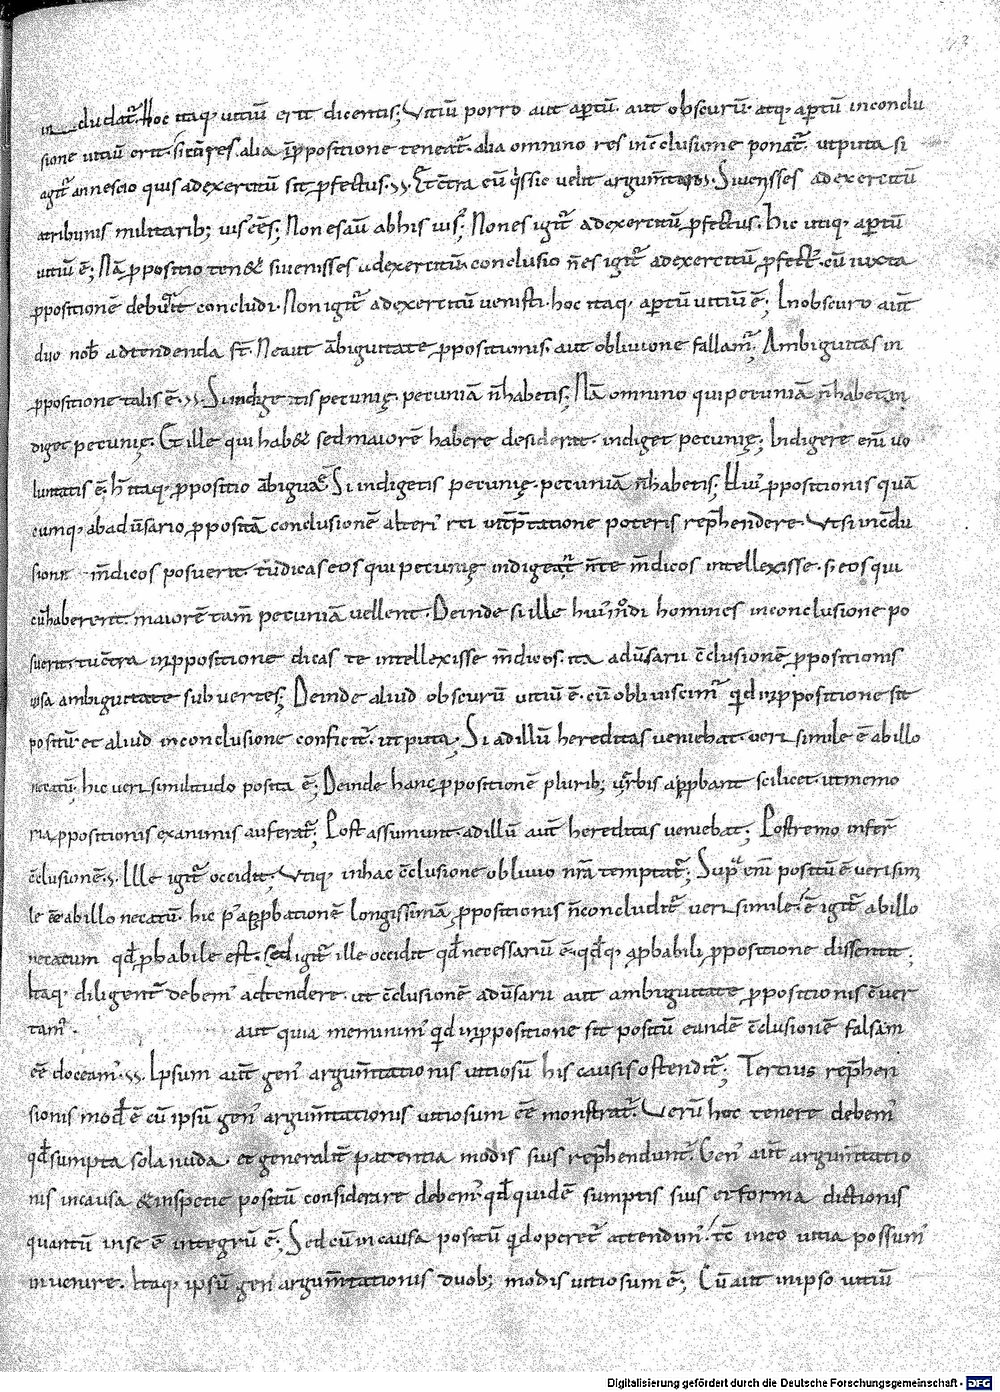 43
in cludat᷑. Hoc itaq; uitiū erit dicentis; Vitiū porro aut aptū. aut obscurū. atq; aptū inconclu
sione uitiū erit. si cū res alia in ꝓpositione teneat᷑. alia omnino res in c̄clusione ponat᷑. utputa si
agit᷑ an nescio quis ad exercitū sit ꝓfectus. Et c̄tra eū q̇s sic uelit argum̄tari. Si uenisses ad exercitū
a tribunis militarib; uisus eēs; Non es aū ab his uisus; Non es igit᷑ ad exercitū ꝓfectus. hic utiq; aptū
uitiū ē; Nā ꝓpositio tenet si uenisses ad exercitū. conclusio n̄ es igit᷑ ad exercitū ꝓfect᷒. cū iuxta
ꝓpositionē debuerit concludi. Non igit᷑ ad exercitū uenisti. hoc itaq; aptū uitiū ē; In obscuro aūt
duo nob̄ adtendenda st̄. Ne aut ābiguitate ꝓpositionis. aut obliuione fallam᷒; Ambiguitas in
ꝓpositione talis ē. Si indigetis pecunię. pecuniā n̄ habetis; Nā omnino qui pecuniā n̄ habet in
diget pecunię. Et ille qui habet sed maiorē habere desiderat. indiget pecunię; Indigere eni᷒ uo
luntatis ē; h̄ itaq; ꝓpositio ābigua ē. Si indigetis pecunię. pecuniā n̄ habetis; Hui᷒ ꝓpositionis quā
cumq; ab aduersario ꝓpositā conclusionē alteri᷒ rei int̄ptatione poteris rep̄hendere. Vt si in c̄clu
sione m̄dicos posuerit. tu dicas eos qui pecunię indigeat᷑ n̄ te m̄dicos intellexisse. si eos qui
cū haberent. maiorē tam̄ pecuniā uellent. Deinde si ille hui᷒modi homines in conclusione po
suerit. tu c̄tra in ꝓpositione dicas te intellexisse m̄dicos. ita aduersarii c̄clusionē ꝓpositionis
ipsa ambiguitate subuertes; Deinde aliud obscurū uitiū ē. cū obliuiscim᷒ qd̄ in ꝓpositione sit
positū. et aliud in conclusione conficit᷑. ut puta; Si ad illū hereditas ueniebat. ueri simile ē ab illo
necatū; hic ueri similitudo posita ē; Deinde hanc ꝓpositionē plurib; uerbis approbant scilicet. ut memo
ria ꝓpositionis ex animis auferat᷑; Post assumunt. ad illū aut̄ hereditas ueniebat; Postremo infer̄
c̄clusionē. Ille igit᷑ occidit; Vtiq; in hac c̄clusione obliuio nr̄a temptat᷑; Supᵃ eni᷒ positū ē uerisimi
le eē ab illo necatū. hic p᷒ approbationē longissimā ꝓpositionis n̄ concludit᷑ uerisimile ē igit᷑ ab illo
necatum qd̄ ꝓbabile est. sed igit᷑ ille occidit qd̄ necessariū ē. qd̄q; a ꝓbabili ꝓpositione dissentit;
Itaq; diligent᷑ debem᷒ adtendere. ut c̄clusionē aduersarii aut ambiguitate ꝓpositionis euer
tam᷒. aut quia meminim᷒ qd̄ in ꝓpositione sit positū eandē c̄clusionē falsam
eē doceam᷒. Ipsum aūt gen᷒ argum̄tationis uitiosū his causis ostendit᷑; Tertius rep̄hen
sionis mod᷒ ē cū ipsū gen᷒ argum̄tationis uitiosum eē monstrat᷑. Verū hoc tenere debem᷒
qd̄ sumpta sola nuda. et generalit᷑ patentia modis suis rep̄hendunt᷑. Gen᷒ aūt argum̄tatio
nis in causa & in specie positū considerare debem᷒. qd̄ quidē sumptis suis et forma dictionis
quantū in se ē integrū ē; Sed cū in causa positū qd̄ oporet᷑ attendim᷒. tc̄ in eo uitia possum᷒
inuenire. Itaq; ipsū gen᷒ argum̄tationis duob; modis uitiosum ē; Cū aūt in ipso uitiū
Digitalisierung gefördert durch die Deutsche Forschungsgemeinschaft - DFG